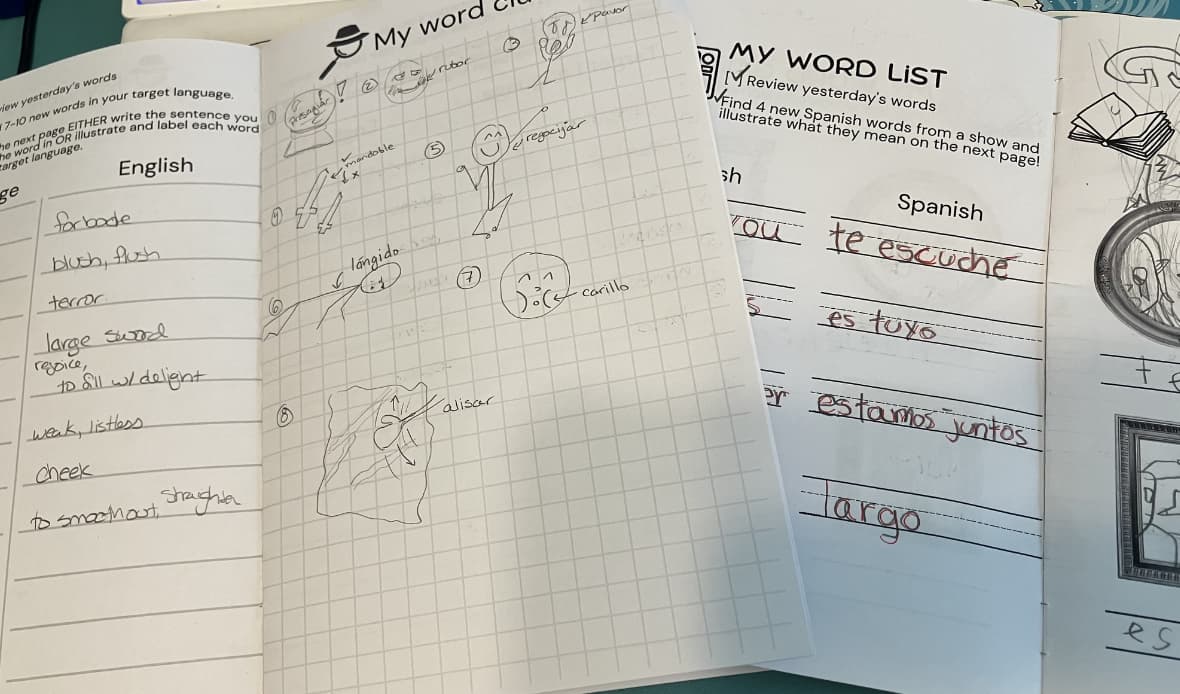 view yesterday's words
7-10 new words in your target language.
next page EITHER write the sentence you
word in OR illustrate and label each word
target language.
English
forbode
blush, flush
terror
large sword
rejoice,
to fill w/ delight
weak, listless
cheek
to smooth out, straighten
My word
① presagiar !
② rubor
③ pavor
④ mandoble
x
⑤ regocijar
⑥ lángido
⑦ carillo
⑧ alisar
MY WORD LiST
Review yesterday's words
Find 4 new Spanish words from a show and
illustrate what they mean on the next page!
Spanish
te escuché
es tuyo
estamos juntos
largo
es